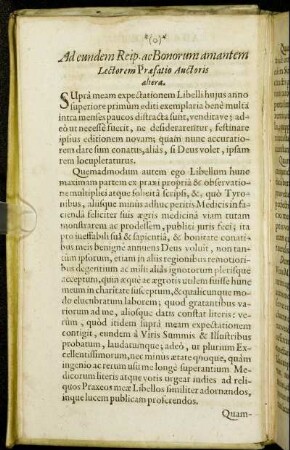 *(o)*
Ad eundem Reip. ac Bonorum amantem
Lectorem Præfatio Auctoris
altera.
Suprà meam expectationem Libelli hujus anno
superiore primùm editi exemplaria benè multa
intra menses paucos distracta sunt, venditave; ad-
eò ut necessè fuerit, ne desiderarentur, festinare
ipsius editionem novam; quàm nunc accuratio-
rem dare sum conatus, aliàs, si Deus volet, ipsam
rem locupletaturus.
Quemadmodum autem ego Libellum hunc
maximam partem ex praxi propriâ & observatio-
ne multiplici atque solicitâ scripsi, &, quò Tyro-
nibus, aliisque minùs adhuc peritis Medicis in fa-
ciendâ feliciter suis ægris medicinâ viam tutam
monstrarem ac prodessem, publici juris feci; ita
pro ineffabili suâ & sapientiâ, & bonitate conati-
bus meis benignè annuens Deus voluit, non tan-
tùm ipsorum, etiam in aliis regionibus remotiori-
bus degentium ac mihi aliàs ignotorum plerisque
acceptum, quin æquè ac ægrotis utilem fuisse hunc
meum in charitate susceptum, & qualicunque mo-
do elucubratum laborem; quod gratantibus va-
riorum ad me, aliosque datis constat literis: ve-
rùm, quòd itidem suprà meam expectationem
contigit, eundem à Viris Summis & Illustribus
probatum, laudatumque; adeò, ut plurium Ex-
cellentissimorum, nec minus ætate quoque, quàm
ingenio ac rerum usu me longè superantium Me-
dicorum literis atque votis urgear indies ad reli-
quos Praxeos meæ Libellos similiter adornandos,
inque lucem publicam proferendos.
Quam-